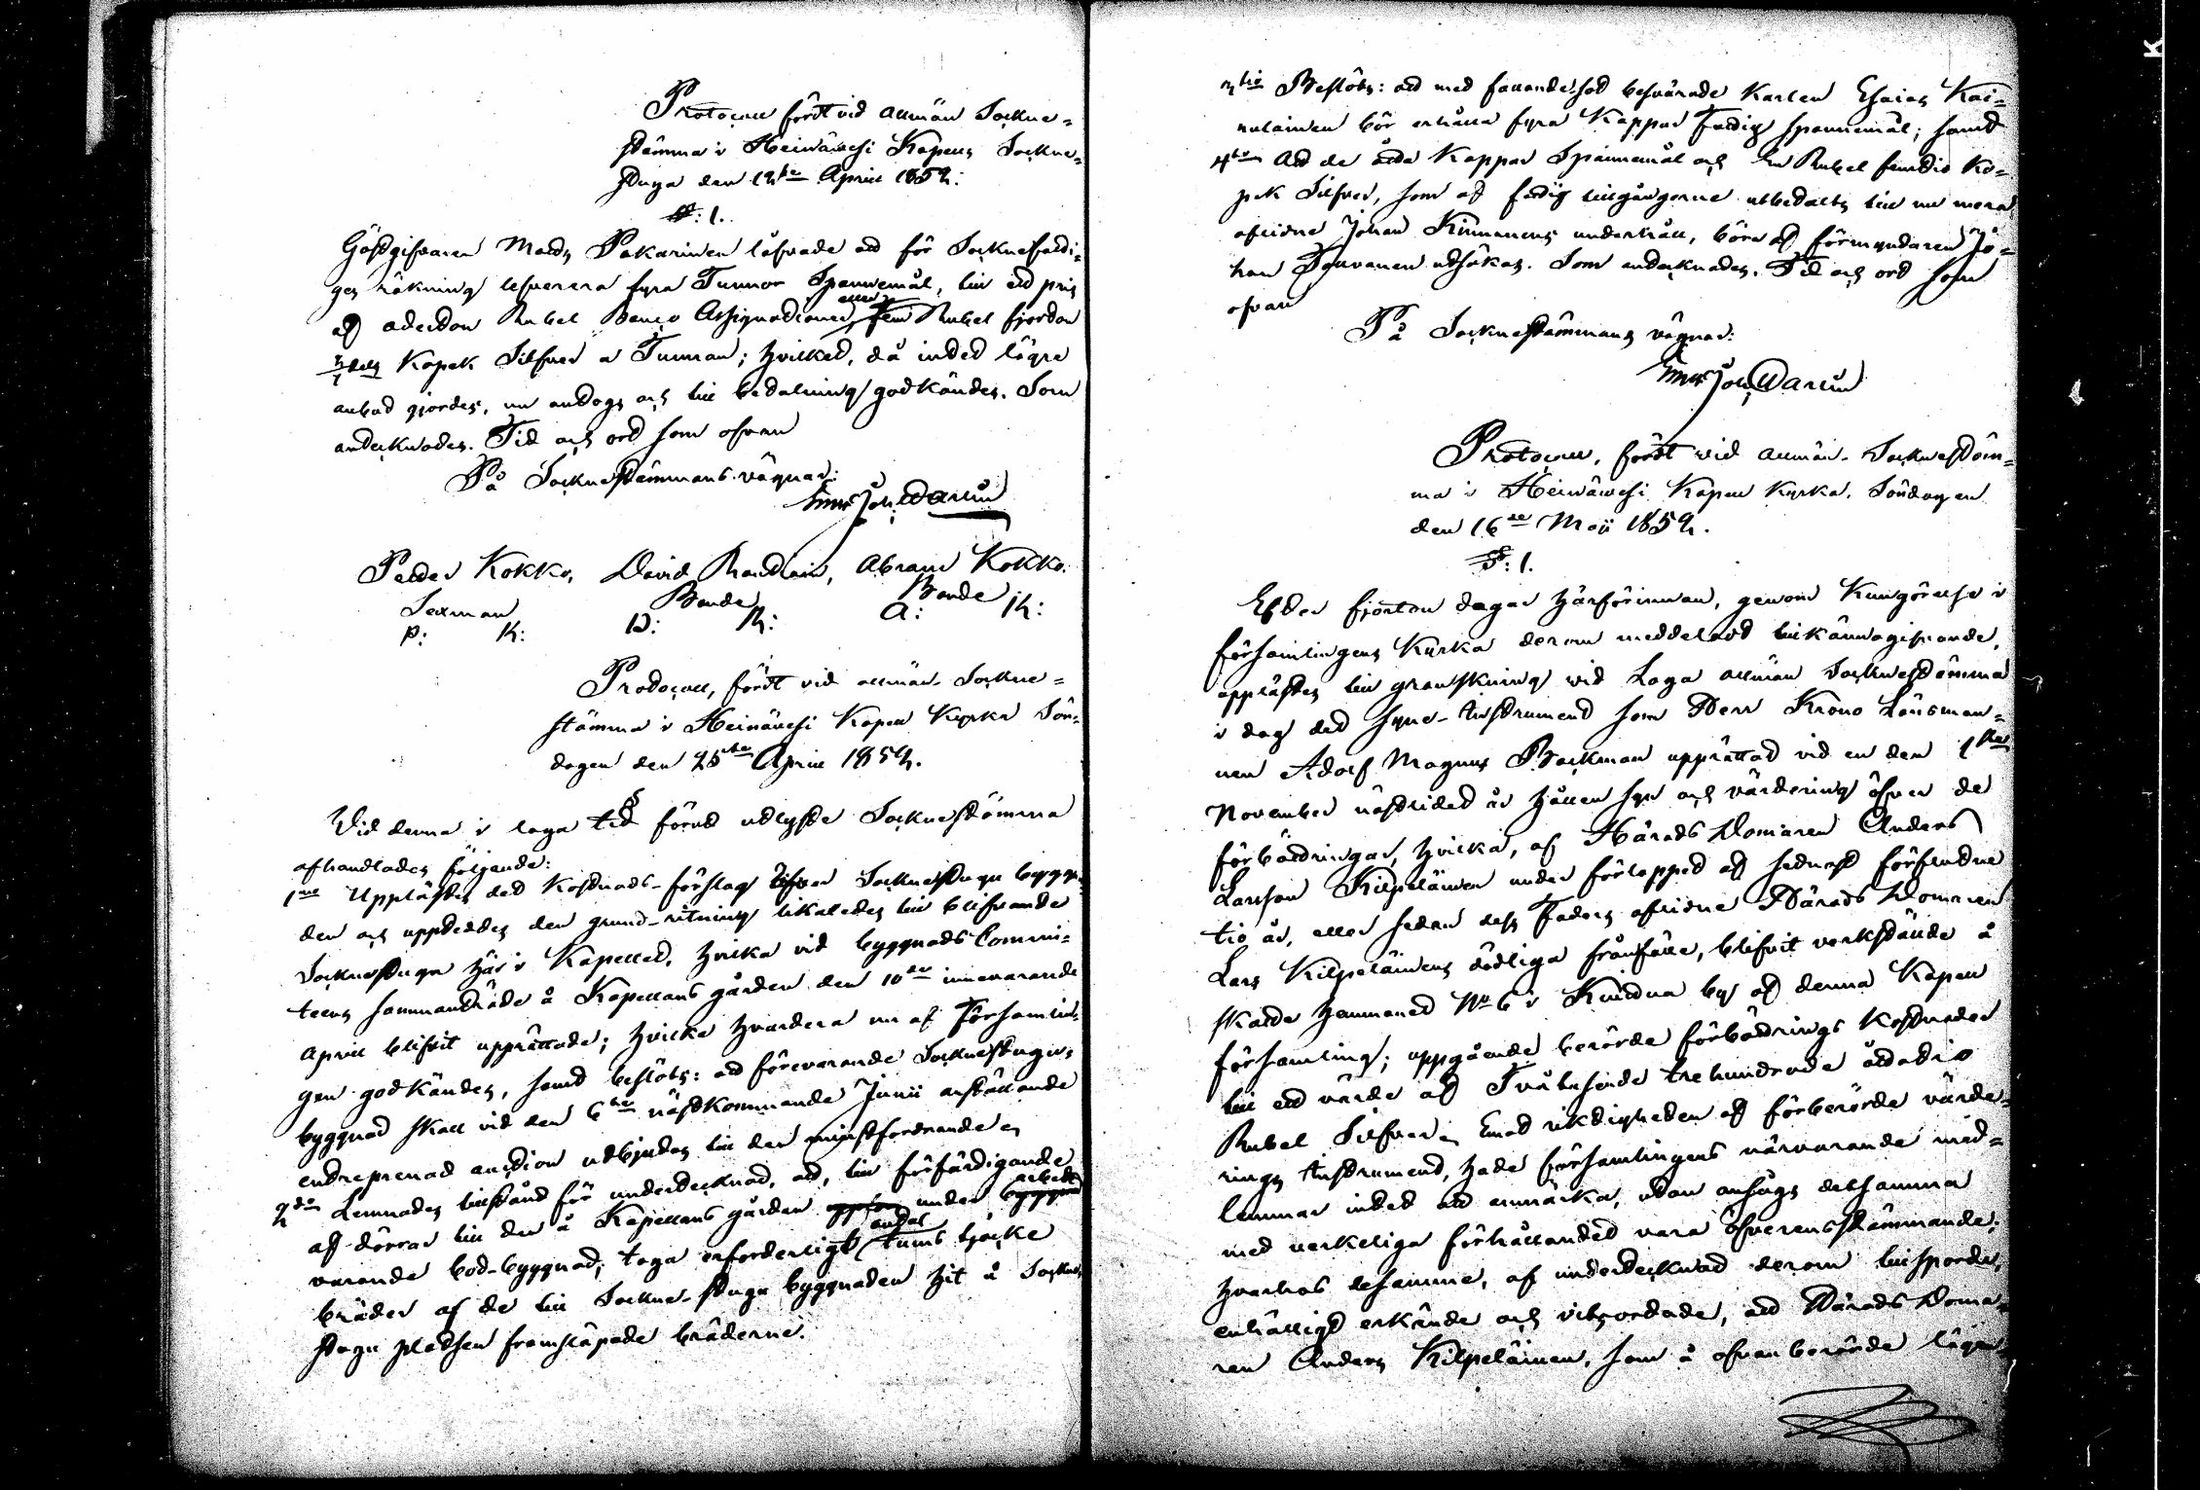 Protocoll fördt vid allmän Sockne-
stämma i Heinäwesi Kapells Sockne-
stuga den 12te April 1852.
§: 1.
Gästgifvaren Mats Pakarinen låfvade att för Socknefattigs
räkning lefverera fyra Tunnor Spannemål, till ett pris
af aderton Rubel Banco Assignationer eller fem Rubel fjorton
2/7 dels Kopek Silfver a Tunnan; hvilket, då intet lägre
anbud gjordes, nu antogs och till betalning godkändes. Som
antecknades. Tid och ort som ofvan
På Socknestämmans vägnar:
Joh. Wallin
Petter Kokko, David Rautiain, Abram Kokko.
Sexman Bonde Bonde
P: K: D: R: A: K:
Protocoll, fördt vid allmän Sockne-
stämma i Heinäwesi Kapell Kyrka Sön-
dagen den 25te April 1852.
§
Vid denna i laga tid förut utlyste Socknestämma
afhandlades följande:
1mo Upplästes det Kostnads-förslag öfver Sockenstugu byggna-
den och uppteddes den grund-ritning likaledes till blifvande
Sockenstugu här i Kapellet, hvilka vid byggnads Commi-
teens sammanträde å Kapellans gården den 10de innevarande
April blifvit upprättade; hvilka hvardera nu af Församlin-
gen godkändes, samt beslöts: att förevarande Sockenstugu-
byggnad skall vid den 6te nästkommande Junii anställande
entreprenad auction utbjudas till den minstfordrande
2do Lemnades tillstånd för undertecknad, att, till förfärdigande
af dörrar till den å Kapellans gården under arbete
varande bod-byggnad, taga erforderligt antal tums tjocke
bräder af de till Sockne-stugu byggnaden hit å Sockne
stugu platsen framsläpade bräderne.
3tio Beslöts: att med fallandesot besvärade Karlen Esaias Kai-
nulainen bör erhålla fyra Kappar Fattig spannemål; samt
4to Att de åtta Kappar Spannemål och En Rubel femtio Ko-
pek Silfver, som af fattig tillgångarne utbetalts till nu mera
aflidne Johan Kinnanens underhåll, böra af förmyndaren Jo-
han Tourunen utsökas. Som antecknades. Tid och ort som
ofvan
På Socknestämmans vägnar:
Joh. Wallin
Protocoll, fördt vid allmän Socknestäm-
ma i Heinäwesi Kapell Kyrka, Söndagen
den 16de Maii 1852.
§: 1.
Efter fjorton dagar härförinnan, genom Kungörelse i
församlingens Kyrka derom meddelad tillkännagifvande,
upplästes till granskning vid Laga allmän Socknestämma
i dag det Syne-Instrument som Herr Krono Länsman-
nen Adolf Magnus Backman upprättat vid en den 1sta
November nästlidet år hållen syn och värdering öfver de
förbättringar, hvilka, af Härads Domaren Anders
Larsson Kilpeläinen under förloppet af sednast förflutne
tio år, eller sedan dess Faders aflidne Härads Domaren
Lars Kilpeläinens dödliga frånfälle, blifvit verkstälde å
Skatte hemmanet No 6 i Kuittua by af denna Kapell
församling; uppgående berörde förbättrings Kostnader
till ett värde af Tvåtusende trehundrade åttatio
Rubel Silfver. Emot riktigheten af förberörde värde-
rings Instrument, hade församlingens närvarande med-
lemmar intet att anmärka, utan ansågs detsamma
med verkeliga förhållandet vara öfverensstämmande;
hvarhos desamme, af undertecknad derom tillsporde,
enhälligt erkände och vitsordade, att Härads Doma-
ren Anders Kilpeläinen, som å ofvanberörde lägen-